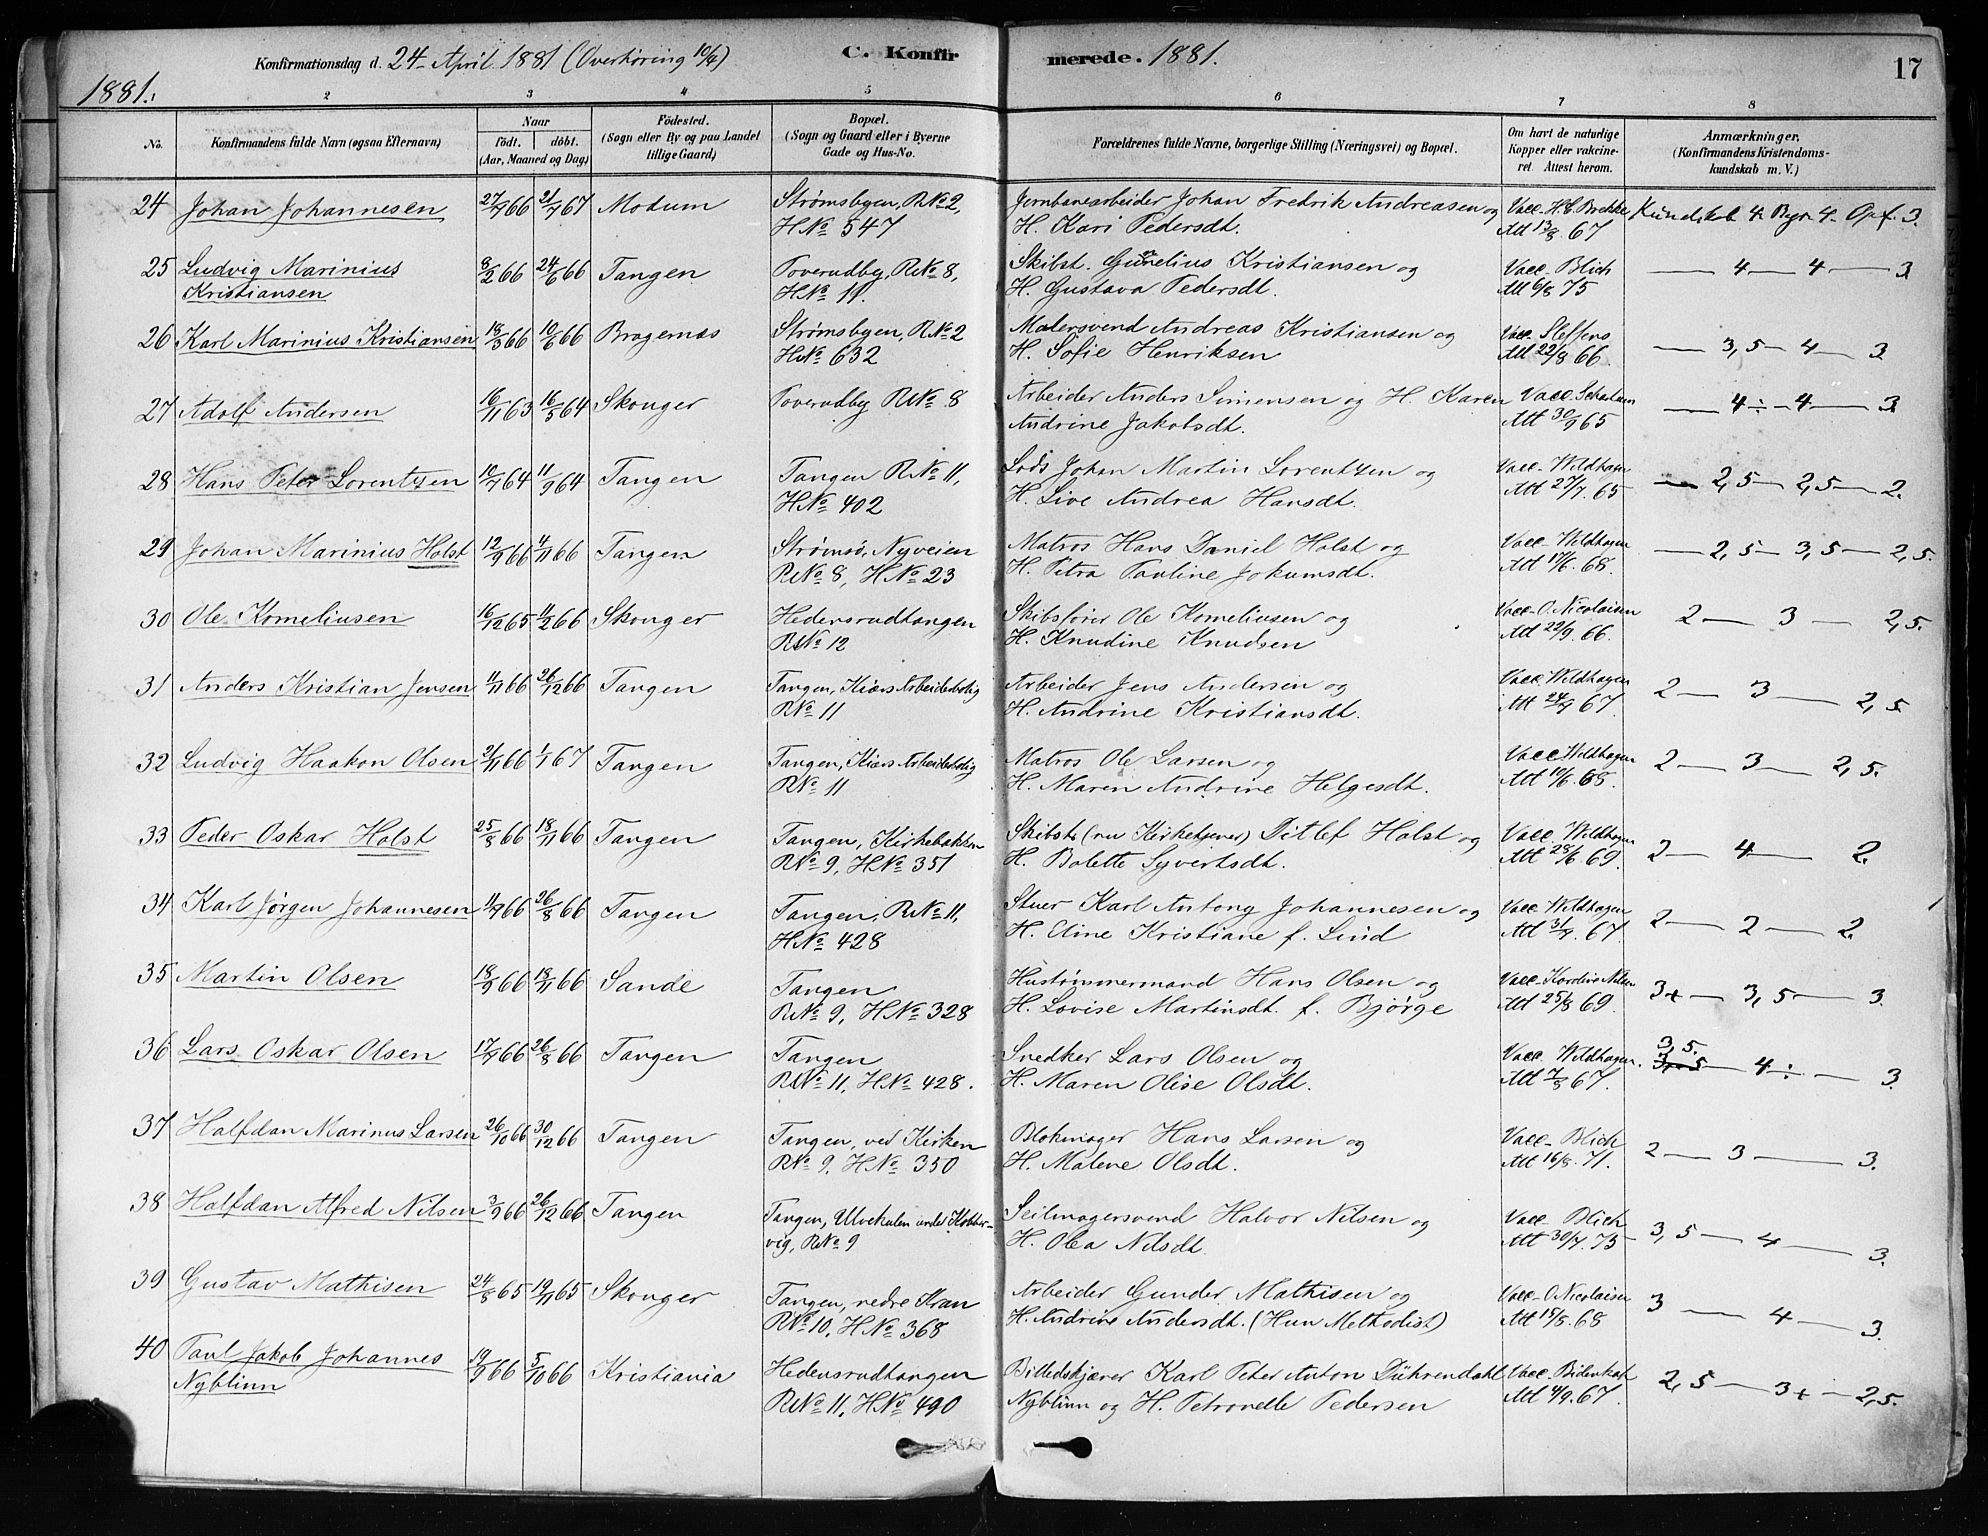 Konfirmationsdag d. 24 April 1881 (Overhøring 10/4) C. Konfirmerede. 1881. 17
1881.
2 3 4 5 6 7 8
No. Konfirmandens fulde Navn (ogsaa Efternavn) Naar født. døbt. (Aar, Maaned og Dag) Fødested. (Sogn eller By og paa Landet tillige Gaard) Bopæl. (Sogn og Gaard eller i Byerne Gade og Hus-No. Forældrenes fulde Navne, borgerlige Stilling (Næringsvei) og Bopæl. Om havt de naturlige Kopper eller vakcineret. Attest herom. Anmærkninger, (Konfirmandens Kristendomskundskab m. V.)
24 Johan Johannesen 27/9 66 21/7 67 Modum Strømsbyen, R.No 2, Jernbanearbeider Johan Fredrik Andreasen og Vacc. H.C. Brekke Kundskab 4. Bgr. 4. Opf. 3.
H No 547 H. Kari Pedersdt. Att 13/8 67
25 Ludvig Marinius 8/2 66 24/6 66 Tangen Toverudby, R.No 8, Skibst. Gunelius Kristiansen og Vacc. Blich — 4 — 4 — 3
Kristiansen H No 11. H. Gustava Pedersdt. Att 6/8 75
26 Karl Marinius Kristiansen 18/3 66 10/6 66 Bragernæs Strømsbyen, R.No 2 Malersvend Andreas Kristiansen og Vacc. Steffens — 3,5 — 4 — 3
H No 632 H. Sofie Henriksen Att 22/8 66
27 Adolf Andersen 16/11 63 16/5 64 Skouger Toverudby R.No 8 Arbeider Anders Simensen og H. Karen Vacc. — 4÷ — 4 — 3
Andrine Jakobsdt. Att 30/9 65
28 Hans Peter Lorentzen 10/7 64 11/9 64 Tangen Tangen R.No 11, Lods Johan Martin Lorentzen og Vacc. Wildhagen — 2,5 — 2,5 — 2.
H No 402 H. Live Andrea Hansdt. Att 27/7. 65
29 Johan Marinius Holst 12/9 66 4/11 66 Tangen Strømsø, Nyveien Matros Hans Daniel Holst og Vacc. Wildhagen — 2,5 — 3,5 — 2,5.
R.No 8, H No 23 H. Petra Pauline Jokumsdt. Att 17/6. 68.
30 Ole Korneliusen 16/12 65 11/2 66 Skouger Hedensrudtangen Skibsfører Ole Korneliusen og Vacc. O. Nicolaisen 2 — 3 — 2,5.
R.No 12 H. Knudine Knudsen Att 22/9. 66.
31 Anders Kristian Jensen 11/11 66 26/12 66 Tangen Tangen, Kiærs Arbeiderbolig Arbeider Jens Andersen og Vacc. Wildhagen 2 — 3 — 2,5.
R.No 11 H. Andrine Kristiansdt. Att 24/9 67.
32 Ludvig Haakon Olsen 21/11 66 1/1 67 Tangen Tangen, Kiærs Arbeiderbolig Matros Ole Larsen og Vacc Wildhagen 2 — 3 — 2,5.
R.No 11 H. Maren Andrine Helgesdt. Att 10/6. 68.
33 Peder Oskar Holst 25/8 66 18/11 66 Tangen Tangen, Kirkebakken Skibst. (nu Kirketjener) Ditlef Holst og Vacc. Wildhagen 2 — 4 — 2.
R.No 9, H No 351 H. Bolette Syvertsdt. Att 28/6. 69.
34 Karl Jørgen Johannesen 11/7 66 26/8 66 Tangen Tangen, R.No 11, Stuer Karl Antony Johannesen og Vacc. Wildhagen 2 — 2 — 2.
H No 428 H. Eline Kristiane f. Lind Att 31/7. 67.
35 Martin Olsen 18/9 66 18/11 66 Sande Tangen Hustømmermand Hans Olsen og Vacc. 3+ — 3,5 — 3.
R.No 9, H No 328 H. Lovise Martinsdt. f. Bjørge Att 25/8 69.
36 Lars Oskar Olsen 17/7 66 26/8 66 Tangen Tangen Snedker Lars Olsen og Vacc. Wildhagen. 3,5. — 4÷ — 3.
R.No 11, H No 428. H. Maren Olise Olsdt. Att 7/8 67.
37 Halfdan Marinus Larsen 26/10 66 30/12 66 Tangen Tangen, ved Kirken Blokmager Hans Larsen og Vacc. Blich 2 — 3 — 3.
R.No 9, H No 350 H. Malene Olsdt. Att 16/8. 71.
38 Halfdan Alfred Nilsen 3/9 66 26/12 66 Tangen Tangen, Ulvekulen under Kobber- Seilmagersvend Halvor Nilsen og Vacc. Blich 3,5 — 4 — 3.
vig, R.No 9 H. Olea Nilsdt. Att 30/7. 75
39 Gustav Mathisen 24/8 65 19/11 65 Skouger Tangen, nedre Kran Arbeider Gunder Mathisen og Vacc. O Nicolaisen 3 — 4 — 3.
R.No 10, H No 368 H. Andrine Andersdt. (Hun Methodist) Att 15/8. 68
40 Paul Jakob Johannes 19/9 66 5/10 66 Kristiania Hedensrudtangen Billedskjærer Karl Peter Anton Dührendahl Vacc. Bidenkap 2,5 — 3+ — 2,5.
Nyblinn R.No 11, H No 490 Nyblinn og H. Petronelle Pedersen Att 4/9. 67.